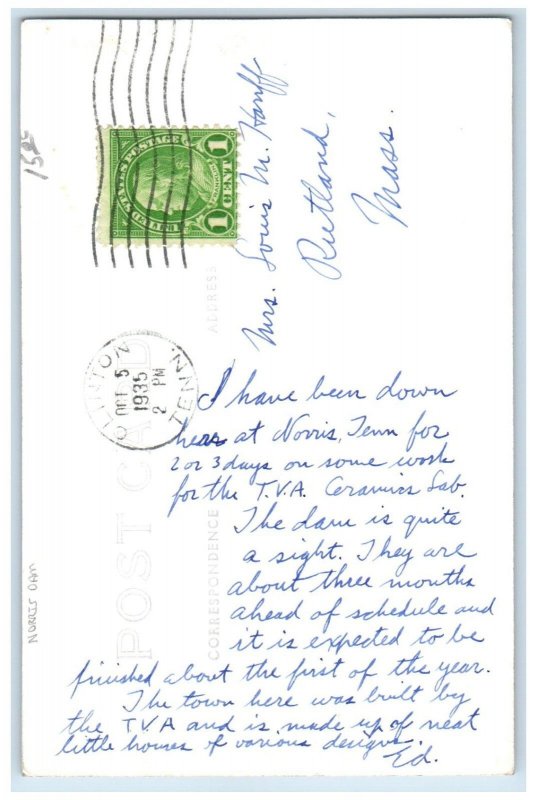 15⁰⁰
UNITED STATES POSTAGE
1 CENT 1
CLINTON
TENN.
OCT 5
1935
2 PM
Mrs. Louis M. Hanff
Rutland,
Mass.
ADDRESS
POST CARD
CORRESPONDENCE
NORRIS DAM
I have been down
here at Norris, Tenn for
2 or 3 days on some work
for the T.V.A. Ceramics Lab.
The dam is quite
a sight. They are
about three months
ahead of schedule and
it is expected to be
finished about the first of the year.
The town here was built by
the T.V.A and is made up of neat
little homes of various designs.
Ed.